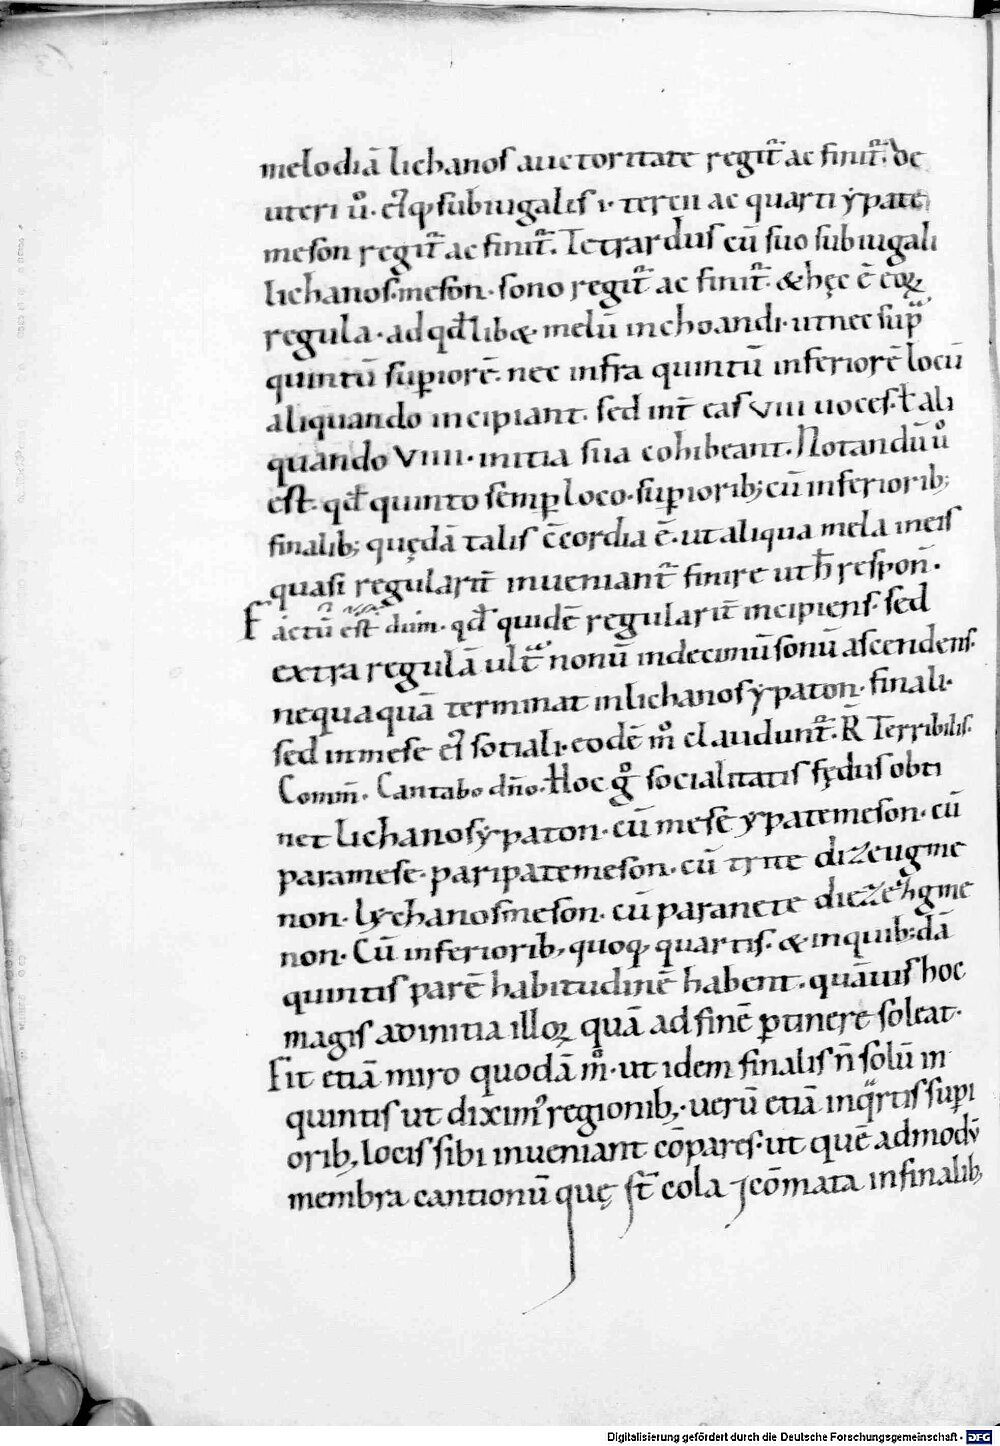 melodiā lichanos auctoritate regit᷑ ac finit᷑. de
uteri u̅o. eiꝰq; subiugalis ·i· tercii ac quarti ypate
meson regit᷑ ac finit᷑. Tetrardus cū suo subiugali
lichanos meson. sono regit᷑ ac finit᷑. & hęc ē eoꝝ
regula. ad qđlib& melū inchoandi. ut nec sup̄
quintū sup̱iorē. nec infra quintū inferiorē locū
aliquando incipiant. sed int̄ eas VIII uoces. ł ali
quando VIIII. initia sua cohibeant. Notandū u̅o
est. qđ quinto semp̱ loco. sup̱iorib; cū inferiorib;
finalib; quędā talis c̄cordia ē. ut aliqua mela in eis
quasi regularit̄ inueniant᷑ finire ut h̄ respon̄.
Factū est dum. qđ quidē regularit̄ incipiens. sed
extra regulā ultᷓ nonū in decimū sonū ascendens.
nequaquā terminat in lichanos ypaton. finali.
sed in mese ei sotiali. eodē m̊ claudunt᷑. R̄ Terribilis.
Comm̄. Cantabo dn̄o. Hoc g̊ socialitatis fędus obti
net lichanos ypaton. cū mese ypate meson. cū
paramese. paripate meson. cū trite diezeugme
non. Lychanos meson. cū paranete diezeugme
non. Cū inferiorib; quoq; quartis. & in quib;dā
quintis parē habitudinē habent. quāuis hoc
magis ad initia illoꝝ quā ad finē p̱tinere soleat.
Fit etiā miro quodā m̊. ut idem finalis n̄ solū in
quintis ut diximꝰ regionib;. uerū etiā in qᷓrtis sup̱i
orib; locis sibi inueniant cōpares. ut quē admodū
membra cantionū quę st̄ cola ⁊ cōmata in finalib;
Digitalisierung gefördert durch die Deutsche Forschungsgemeinschaft - DFG